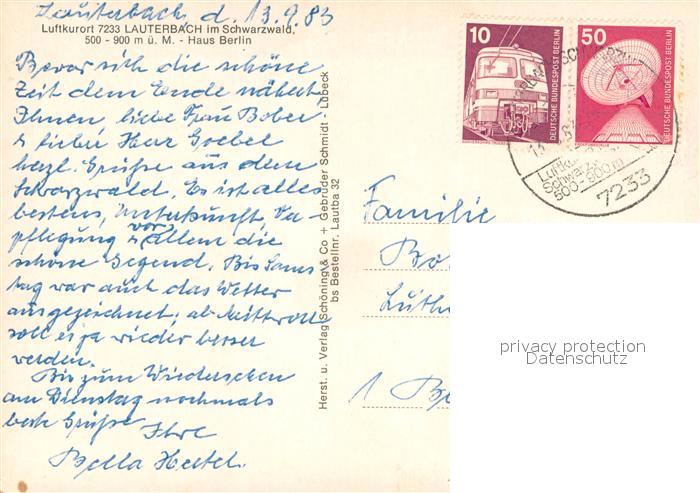 Lauterbach, d. 13.9.83
Luftkurort 7233 LAUTERBACH im Schwarzwald,
500 - 900 m ü. M. - Haus Berlin
Bevor sich die schöne
Zeit dem Ende nähert
Ihnen, liebe Frau Bober
u. lieber Herr Goebel
herzl. Grüße aus dem
Schwarzwald. Es ist alles
bestens, Unterkunft, Ver-
pflegung vor allem die
schöne Gegend. Bis Sams
tag war auch das Wetter
ausgezeichnet; ab Mittwoch
soll es ja wieder besser
werden.
Bis zum Wiedersehen
am Dienstag nochmals
beste Grüße
Ihre
Bella Hertel.
Herst. u. Verlag Schöning & Co + Gebrüder Schmidt - Lübeck
bs Bestellnr. Lautba 32
10
DEUTSCHE BUNDESPOST BERLIN
50
DEUTSCHE BUNDESPOST BERLIN
Luftku
Schwarzw
500-900m
7233
Familie
Bo
Luth
1 Be
privacy protection
Datenschutz